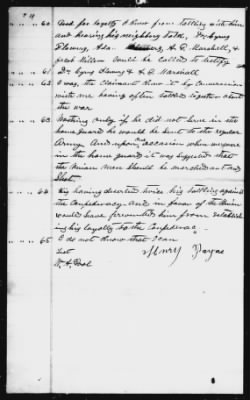 " " " 60 And his loyalty I know from talking with him
and hearing his neighbors talk, Dr. Ewing
Flowers, Ada H. D. Marshall, &
Jack Millsom Could be called to testify
" " " 61 Dr. Ewing Flowers & H. D. Marshall
" " " 62 I was, the Claimant knew it by Conversation
with me having often talked together about
the war.
" " " 63 Nothing only if he did not serve in the
home guard he would be sent to the regular
Army And upon one occasion when mustered
in the home guard it was suggested that
the Union men should be marched out and
Shot.
" " " 64 His having deserted twice his talking against
the Confederacy and in favor of the Union
would have prevented him from establish
ing his loyalty to the Confederacy.
" " " 65 I do not know that I can
Test Henry Payne
W. A. Bool